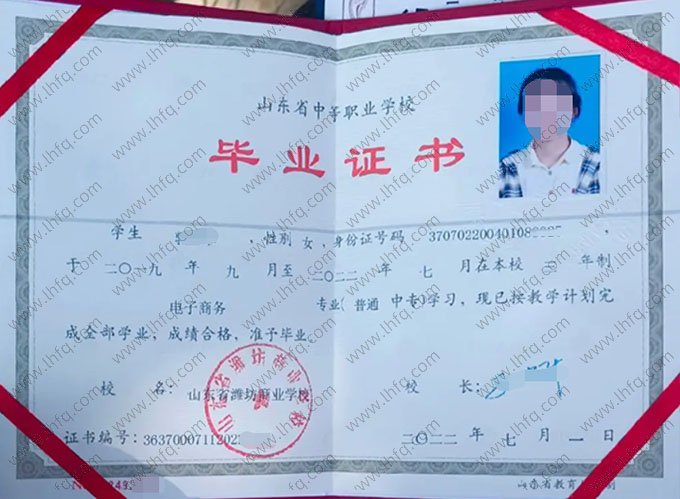 山东省中等职业学校
毕业证书
学生 ，性别 女，身份证号码 370702200401082
于 二〇一九 年 九 月至 二〇二二 年 七 月在本校 三 年制
电子商务 专业( 普通 中专)学习，现已按教学计划完
成全部学业，成绩合格，准予毕业。
校 名： 山东省潍坊商业学校
校 长：
山东省潍坊商业学校
证书编号：36370007112022
二〇二二 年 七 月 一 日
山东省教育 制
www.lhfq.com